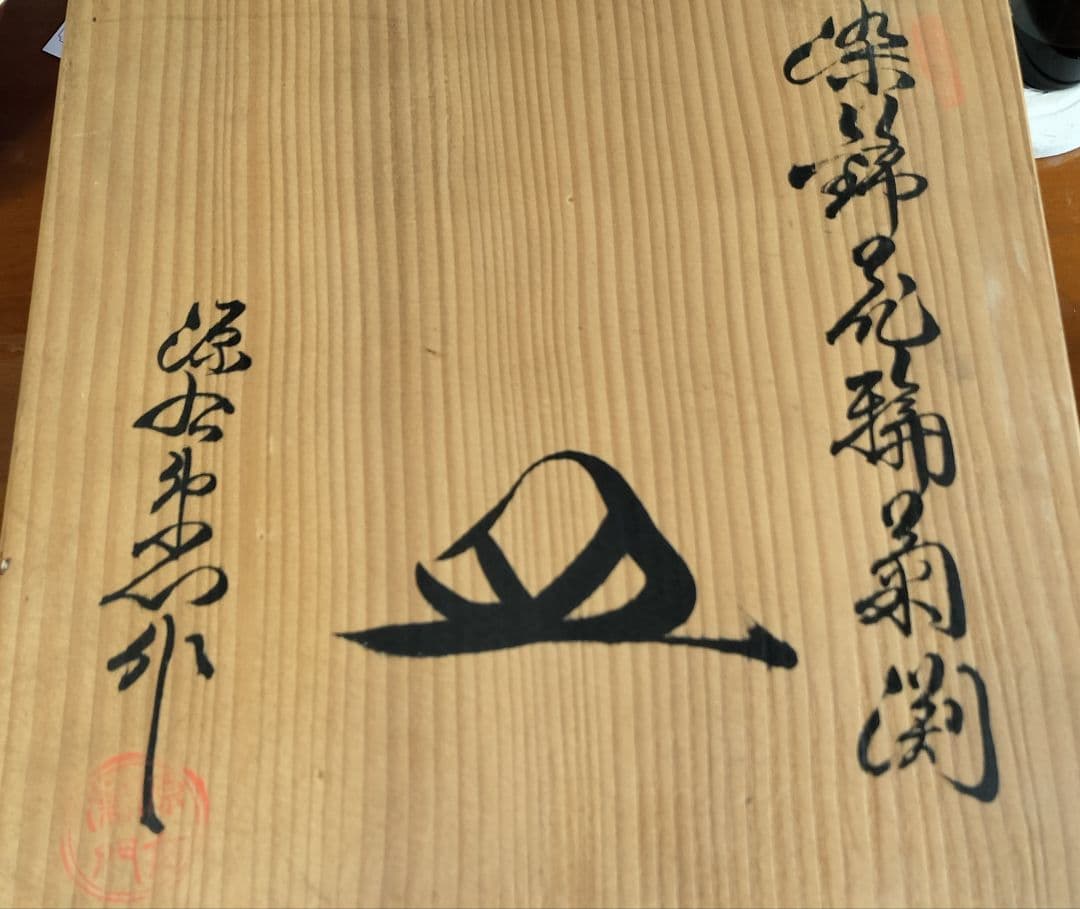 染錦花輪菊渕
皿
源右衛門作